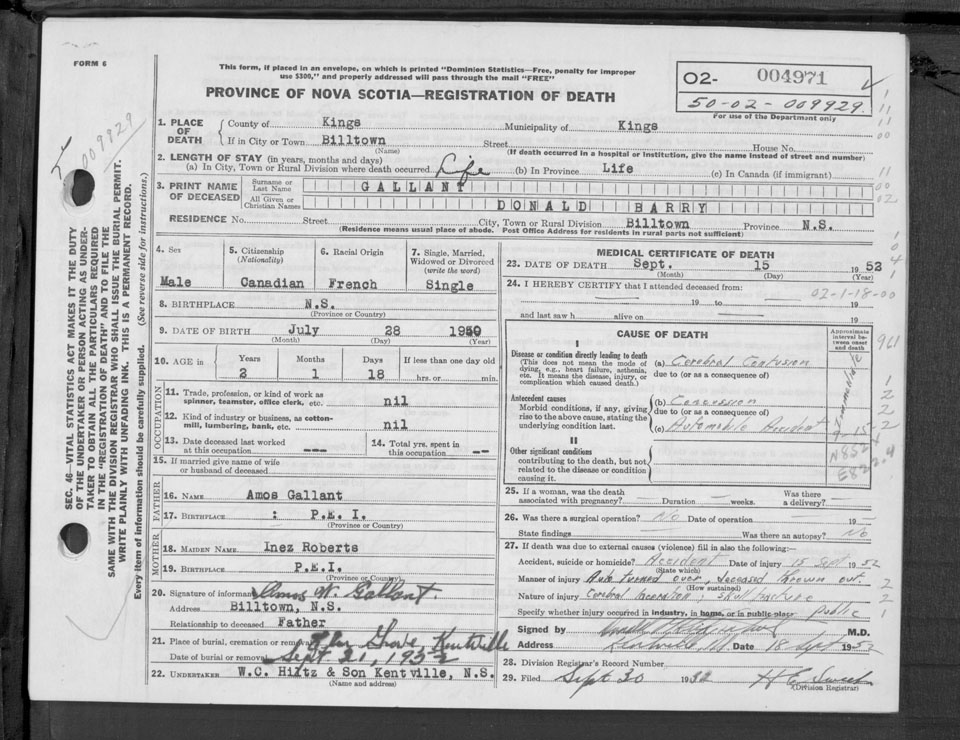 FORM 6
This form, if placed in an envelope, on which is printed "Dominion Statistics—Free, penalty for improper
use $300," and properly addressed will pass through the mail "FREE"
PROVINCE OF NOVA SCOTIA—REGISTRATION OF DEATH
02- 004971
50-02-009929
For use of the Department only
009929
SEC. 46—VITAL STATISTICS ACT MAKES IT THE DUTY
OF THE UNDERTAKER OR PERSON ACTING AS UNDER-
TAKER TO OBTAIN ALL THE PARTICULARS REQUIRED
IN THE "REGISTRATION OF DEATH" AND TO FILE THE
SAME WITH THE DIVISION REGISTRAR WHO SHALL ISSUE THE BURIAL PERMIT.
WRITE PLAINLY WITH UNFADING INK. THIS IS A PERMANENT RECORD.
Every item of information should be carefully supplied. (See reverse side for instructions.)
1. PLACE OF DEATH
County of Kings Municipality of Kings
If in City or Town Billtown Street House No.
(Name) (If death occurred in a hospital or institution, give the name instead of street and number)
2. LENGTH OF STAY (in years, months and days)
(a) In City, Town or Rural Division where death occurred Life (b) In Province Life (c) In Canada (if immigrant)
3. PRINT NAME OF DECEASED
Surname or Last Name GALLANT
All Given or Christian Names DONALD BARRY
RESIDENCE No. Street City, Town or Rural Division Billtown Province N.S.
(Residence means usual place of abode. Post Office Address for residents in rural parts not sufficient)
4. Sex 5. Citizenship (Nationality) 6. Racial Origin 7. Single, Married, Widowed or Divorced (write the word)
Male Canadian French Single
8. BIRTHPLACE N.S.
(Province or Country)
9. DATE OF BIRTH July 28 1950
(Month) (Day) (Year)
10. AGE in Years Months Days If less than one day old
2 1 18 hrs. or min.
OCCUPATION
11. Trade, profession, or kind of work as
spinner, teamster, office clerk, etc. nil
12. Kind of industry or business, as cotton-
mill, lumbering, bank, etc. nil
13. Date deceased last worked
at this occupation ---
14. Total yrs. spent in
this occupation --
15. If married give name of wife
or husband of deceased
FATHER
16. NAME Amos Gallant
17. BIRTHPLACE : P.E.I.
(Province or Country)
MOTHER
18. MAIDEN NAME Inez Roberts
19. BIRTHPLACE P.E.I.
(Province or Country)
20. Signature of informant Amos W. Gallant
Address Billtown, N.S.
Relationship to deceased Father
21. Place of burial, cremation or removal Grove Kentville
Date of burial or removal Sept 21, 1952
22. UNDERTAKER W.C. Hiltz & Son Kentville, N.S.
(Name and address)
MEDICAL CERTIFICATE OF DEATH
23. DATE OF DEATH Sept. 15 1952
(Month) (Day) (Year)
24. I HEREBY CERTIFY that I attended deceased from:
02-1-18-00
19 to 19
and last saw h alive on 19
CAUSE OF DEATH
Approximate interval between onset and death
I
Disease or condition directly leading to death
(This does not mean the mode of
dying, e.g., heart failure, asthenia,
etc. It means the disease, injury, or
complication which caused death.)
(a) Cerebral Contusion
due to (or as a consequence of)
Antecedent causes
Morbid conditions, if any, giving
rise to the above cause, stating the
underlying condition last.
(b) Concussion
due to (or as a consequence of)
(c) Automobile Accident
II
Other significant conditions
contributing to the death, but not
related to the disease or condition
causing it.
N852
E822.4
25. If a woman, was the death
associated with pregnancy? Duration weeks. Was there
a delivery?
26. Was there a surgical operation? No Date of operation 19
State findings Was there an autopsy? No
27. If death was due to external causes (violence) fill in also the following:-
Accident, suicide or homicide? Accident Date of injury 15 Sept 1952
(State which)
Manner of injury Auto turned over, deceased thrown out
(How sustained)
Nature of injury Cerebral laceration; skull fracture
Specify whether injury occurred in industry, in home, or in public place Public
Signed by M.D.
Address Kentville Date 18 Sept 1952
28. Division Registrar's Record Number
29. Filed Sept 20 1952 H E Sweet
(Division Registrar)